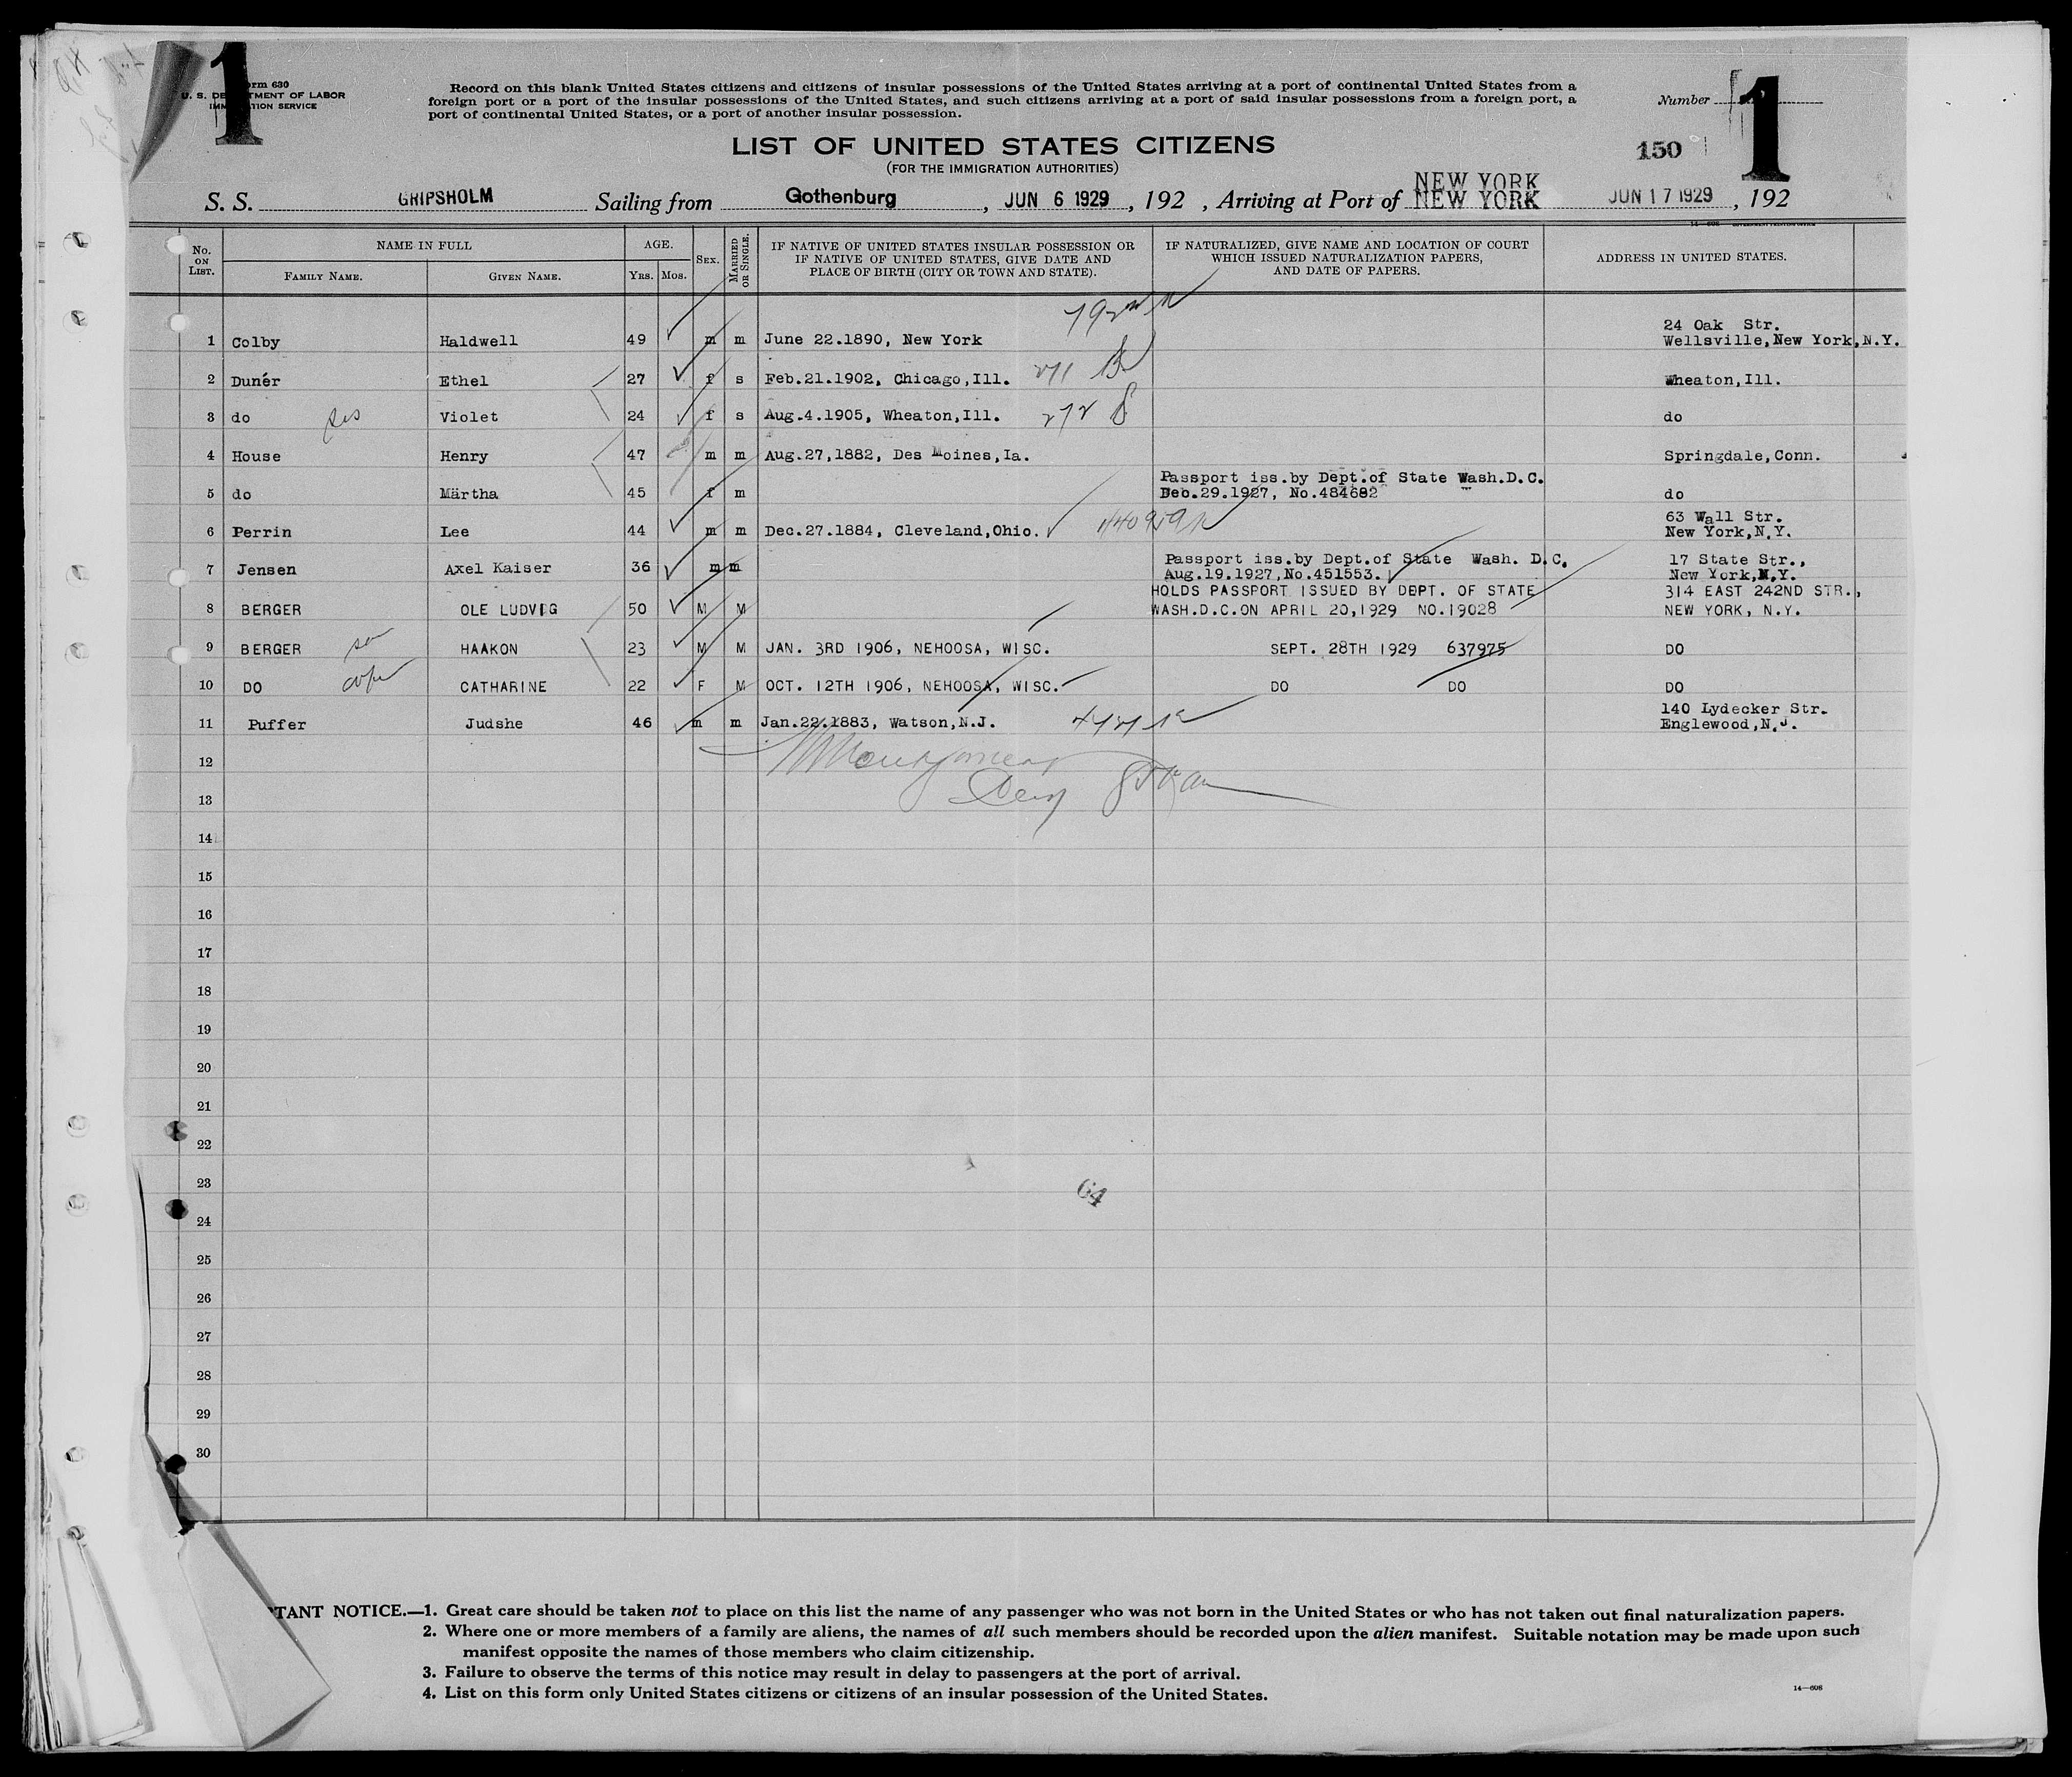 1
Form 630
U. S. DEPARTMENT OF LABOR
IMMIGRATION SERVICE
Record on this blank United States citizens and citizens of insular possessions of the United States arriving at a port of continental United States from a
foreign port or a port of the insular possessions of the United States, and such citizens arriving at a port of said insular possessions from a foreign port, a
port of continental United States, or a port of another insular possession.
Number 1
LIST OF UNITED STATES CITIZENS
(FOR THE IMMIGRATION AUTHORITIES)
150
S. S. GRIPSHOLM Sailing from Gothenburg, JUN 6 1929, 192 , Arriving at Port of NEW YORK NEW YORK JUN 17 1929, 192
No. ON LIST. NAME IN FULL FAMILY NAME. GIVEN NAME. AGE. YRS. MOS. SEX. MARRIED OR SINGLE. IF NATIVE OF UNITED STATES INSULAR POSSESSION OR IF NATIVE OF UNITED STATES, GIVE DATE AND PLACE OF BIRTH (CITY OR TOWN AND STATE). IF NATURALIZED, GIVE NAME AND LOCATION OF COURT WHICH ISSUED NATURALIZATION PAPERS, AND DATE OF PAPERS. ADDRESS IN UNITED STATES.
1 Colby Haldwell 49 m m June 22.1890, New York 24 Oak Str. Wellsville,New York,N.Y.
2 Dunér Ethel 27 f s Feb.21.1902, Chicago,Ill. 271 Wheaton,Ill.
3 do sis Violet 24 f s Aug.4.1905, Wheaton,Ill. 272 do
4 House Henry 47 m m Aug.27,1882, Des Moines,Ia. Springdale,Conn.
5 do Märtha 45 f m Passport iss.by Dept.of State Wash.D.C. Dec.29.1927, No.484682 do
6 Perrin Lee 44 m m Dec.27.1884, Cleveland,Ohio. 63 Wall Str. New York,N.Y.
7 Jensen Axel Kaiser 36 m m Passport iss.by Dept.of State Wash. D.C. Aug.19.1927,No.451553. 17 State Str., New York,N.Y.
8 BERGER OLE LUDVIG 50 M M HOLDS PASSPORT ISSUED BY DEPT. OF STATE WASH.D.C.ON APRIL 20,1929 NO.19028 314 EAST 242ND STR., NEW YORK, N.Y.
9 BERGER son HAAKON 23 M M JAN. 3RD 1906, NEHOOSA, WISC. SEPT. 28TH 1929 637975 DO
10 DO wife CATHARINE 22 F M OCT. 12TH 1906, NEHOOSA, WISC. DO DO DO
11 Puffer Judshe 46 m m Jan.22.1883, Watson,N.J. 140 Lydecker Str. Englewood,N.J.
12
13
14
15
16
17
18
19
20
21
22
23
64
24
25
26
27
28
29
30
TANT NOTICE.—1. Great care should be taken not to place on this list the name of any passenger who was not born in the United States or who has not taken out final naturalization papers.
2. Where one or more members of a family are aliens, the names of all such members should be recorded upon the alien manifest. Suitable notation may be made upon such
manifest opposite the names of those members who claim citizenship.
3. Failure to observe the terms of this notice may result in delay to passengers at the port of arrival.
4. List on this form only United States citizens or citizens of an insular possession of the United States.
14—608